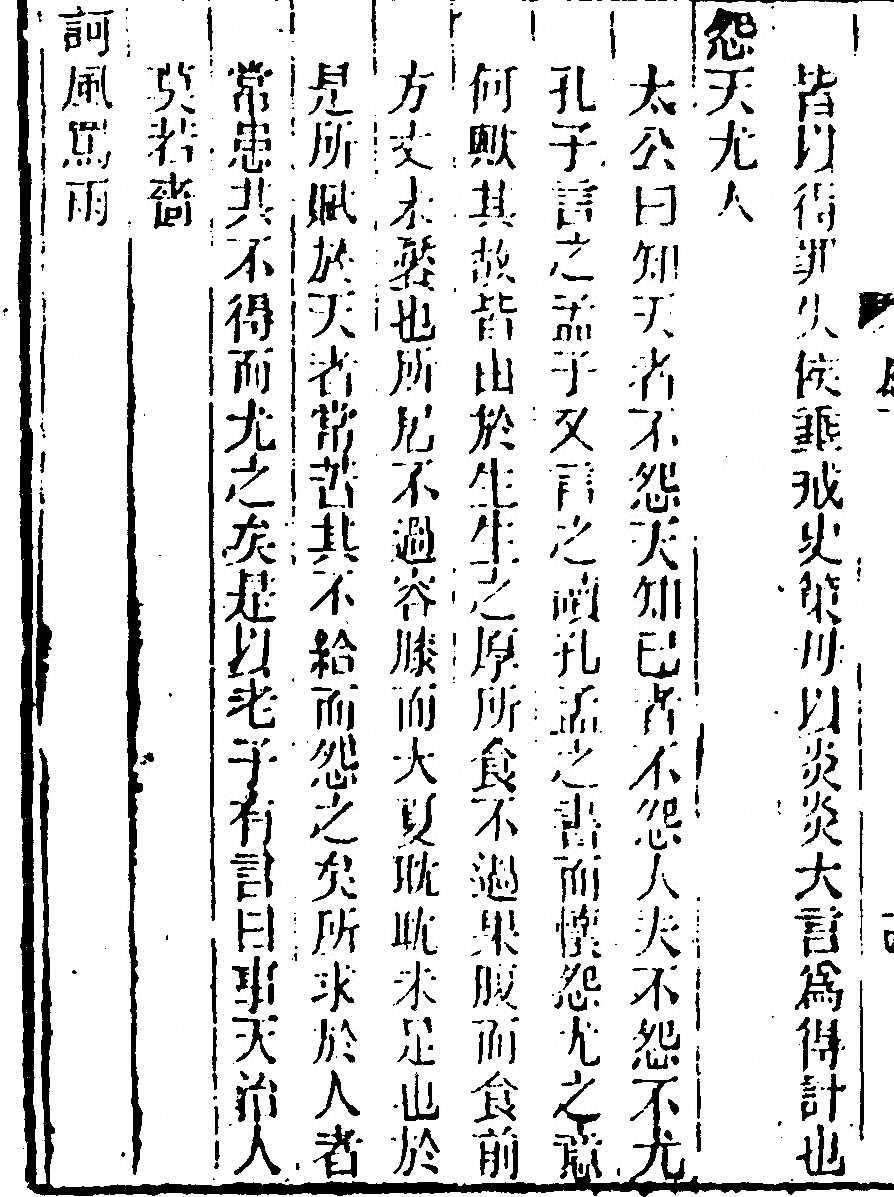 皆以得罪失侯垂戒史策毋以炎炎大言為得計也
怨天尤人
太公曰知天者不怨天知己者不怨人夫不怨不尤
孔子言之孟子又言之讀孔孟之書而懷怨尤之意
何歟其故皆由於生生之厚所食不過果腹而食前
方丈未饜也所居不過容膝而大夏耽耽未足也於
是所賦於天者常苦其不給而怨之矣所求於人者
常患其不得而尤之矣是以老子有言曰事天治人
莫若嗇
訶風罵雨